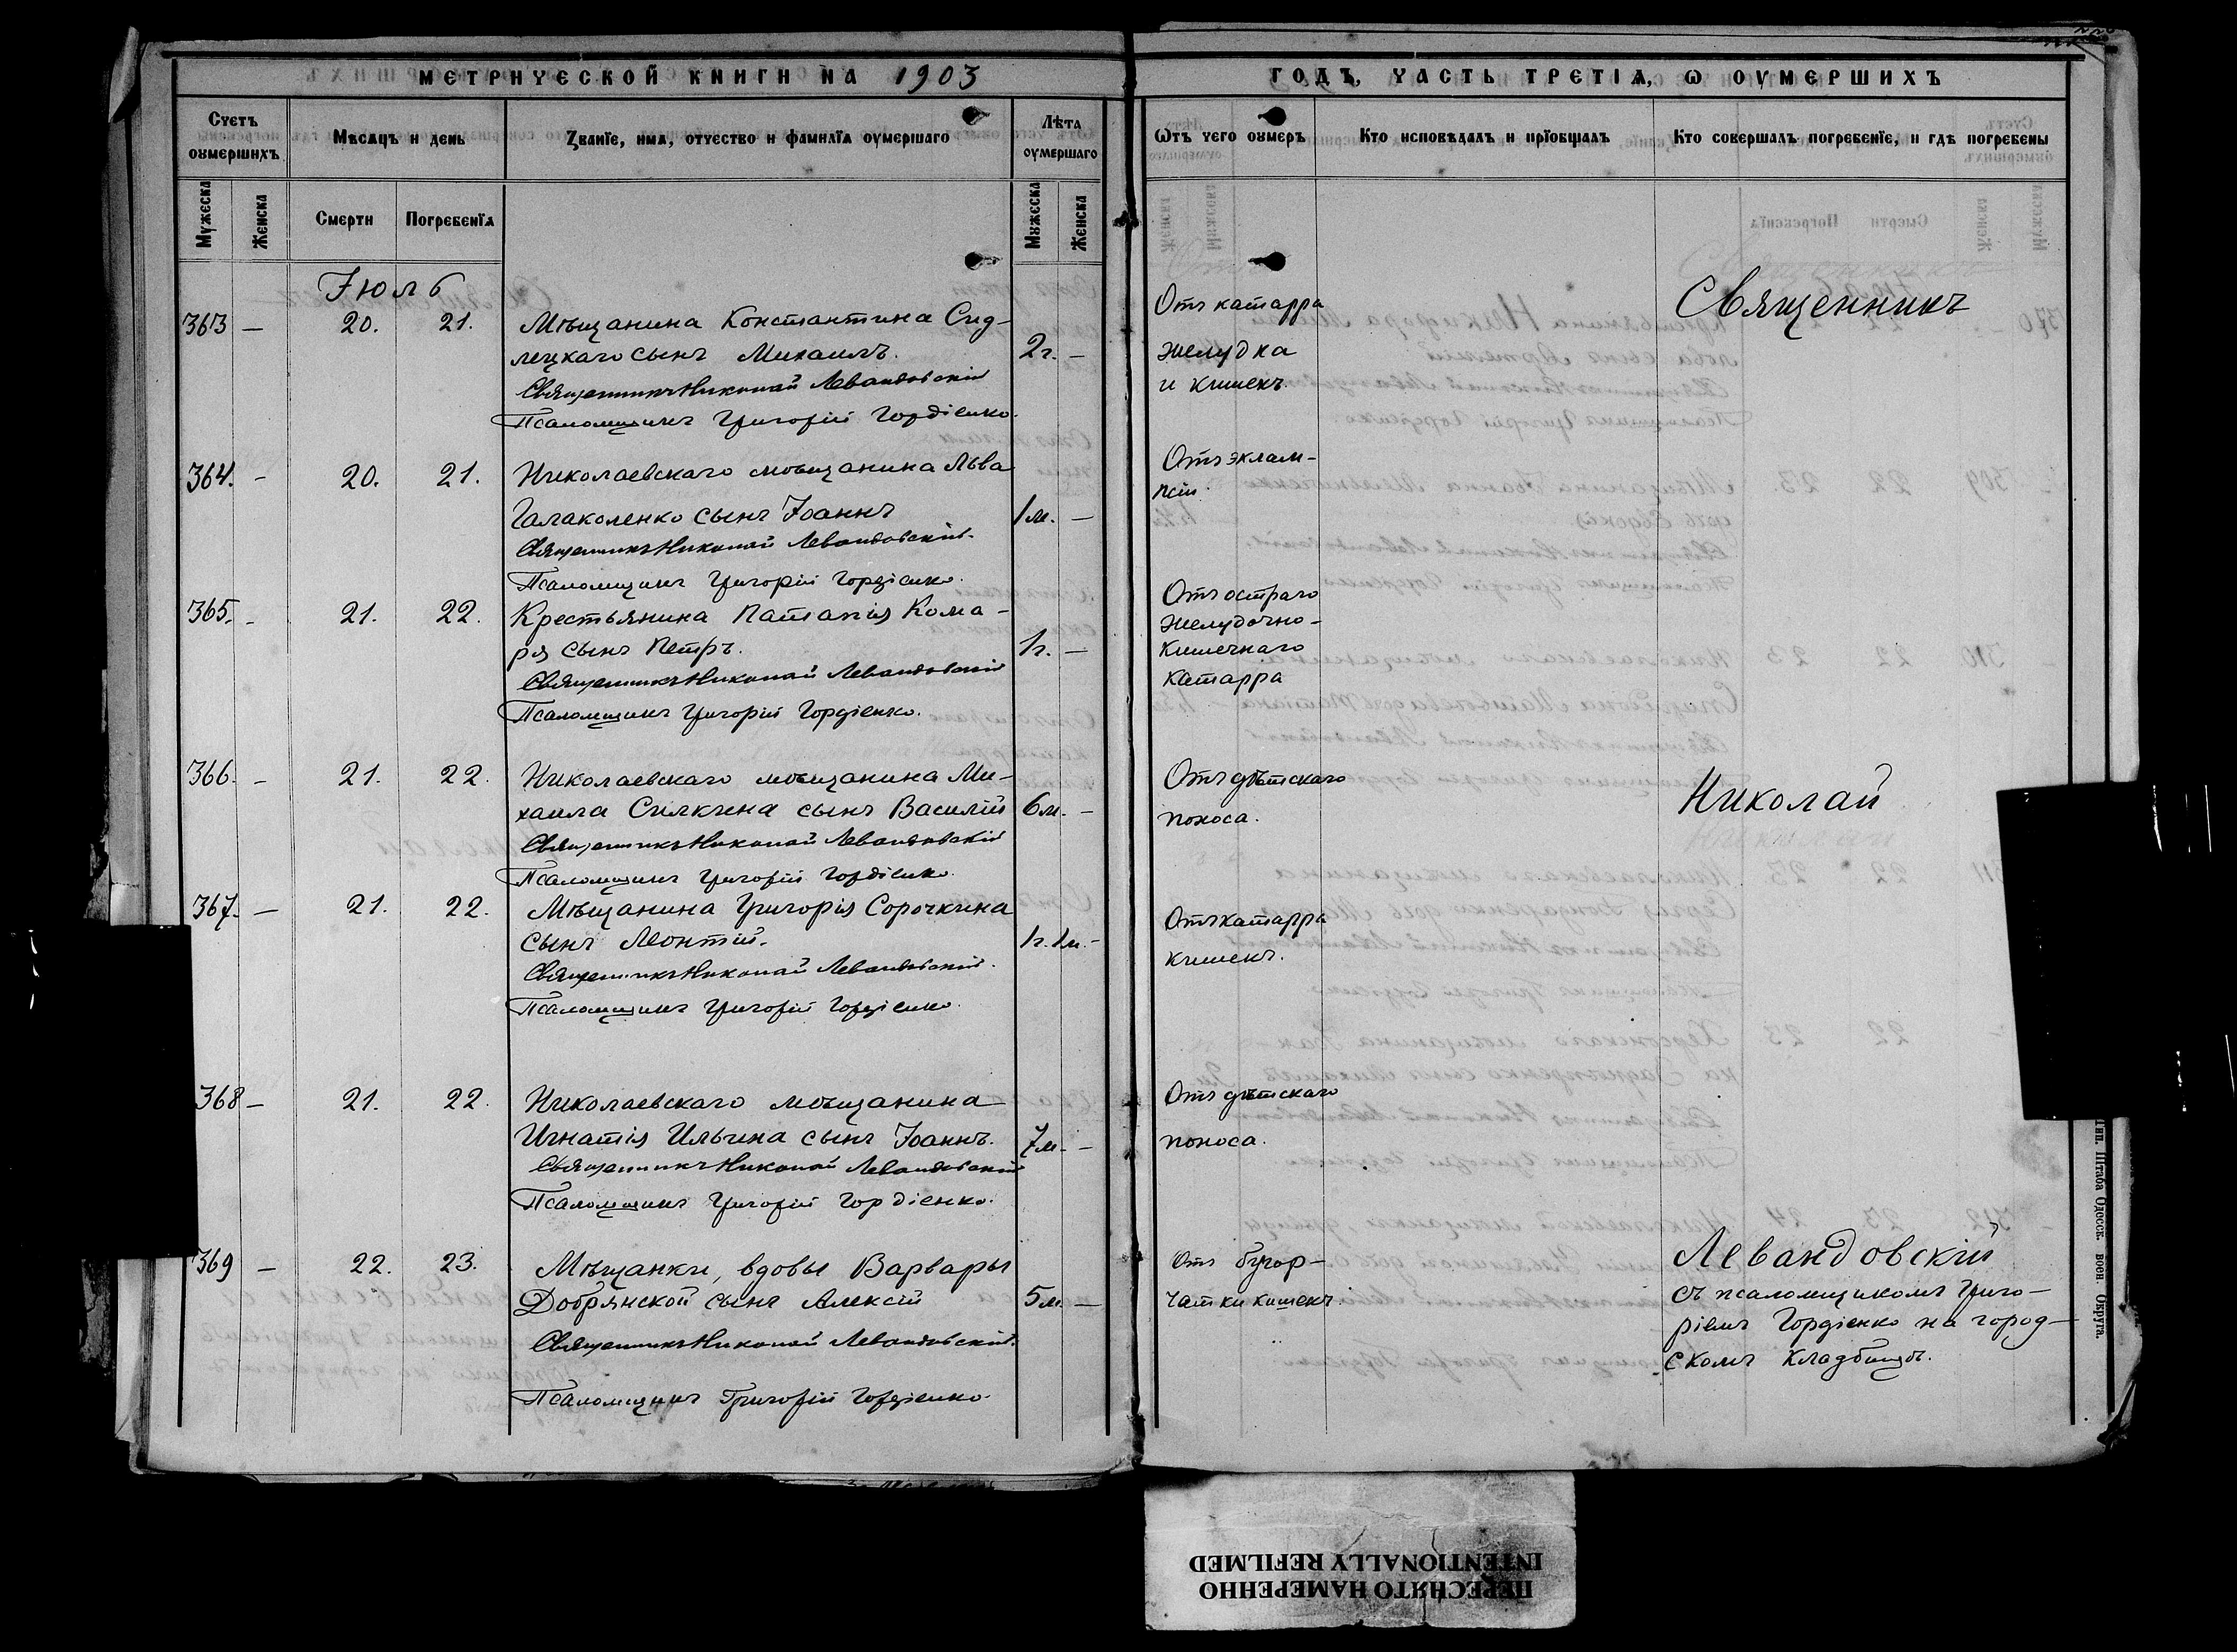 МЕТРИЧЕСКОЙ КНИГИ НА 1903
ГОДЪ, ЧАСТЬ ТРЕТІѦ, Ѡ ОУМЕРШИХЪ
Счетъ оумершихъ
Мѣсѧцъ и день
Званїе, имѧ, отчество и фамилїѧ оумершаго
Лѣта оумершаго
Ѡтъ чего оумеръ
Кто исповѣдалъ и прїобщалъ
Кто совершалъ погребенїе, и гдѣ погребены
Мужеска
Женска
Смерти
Погребенїѧ
Мужеска
Женска
Іюль
363 — 20. 21. Мѣщанина Константина Сид-
лецкаго сынъ Михаилъ. 2г. —
Священникъ Николай Левандовскій
Псаломщикъ Григорій Гордіенко.
Отъ катарра
желудка
и кишекъ.
364. - 20. 21. Николаевскаго мѣщанина Льва
Галаколенко сынъ Іоаннъ 1м. —
Священникъ Николай Левандовскій.
Псаломщикъ Григорій Гордіенко.
Отъ эклам-
псіи.
365. - 21. 22. Крестьянина Патапія Кома-
ря сынъ Петръ. 1г. —
Священникъ Николай Левандовскій
Псаломщикъ Григорій Гордіенко.
Отъ остраго
желудочно-
кишечнаго
катарра
366. - 21. 22. Николаевскаго мѣщанина Ми-
хаила Силкина сынъ Василій 6м. -
Священникъ Николай Левандовскій
Псаломщикъ Григорій Гордіенко.
Отъ дѣтскаго
поноса.
367. — 21. 22. Мѣщанина Григорія Сорочкина
сынъ Леонтій. 1г. 1м. -
Священникъ Николай Левандовскій.
Псаломщикъ Григорій Гордіенко.
Отъ катарра
кишекъ.
368 — 21. 22. Николаевскаго мѣщанина
Игнатія Ильина сынъ Іоаннъ. 7м. -
Священникъ Николай Левандовскій
Псаломщикъ Григорій Гордіенко.
Отъ дѣтскаго
поноса.
369 — 22. 23. Мѣщанки, вдовы Варвары
Добрянской сынъ Алексій 5м. —
Священникъ Николай Левандовскій.
Псаломщикъ Григорій Гордіенко.
Отъ бугор-
чатки кишекъ.
Священникъ
Николай
Левандовскій
съ псаломщикомъ Григо-
ріемъ Гордіенко на город-
скомъ кладбищѣ.
Тип. Штаба Одесск. воен. Округа.
ПЕРЕСНЯТО НАМЕРЕННО
INTENTIONALLY REFILMED